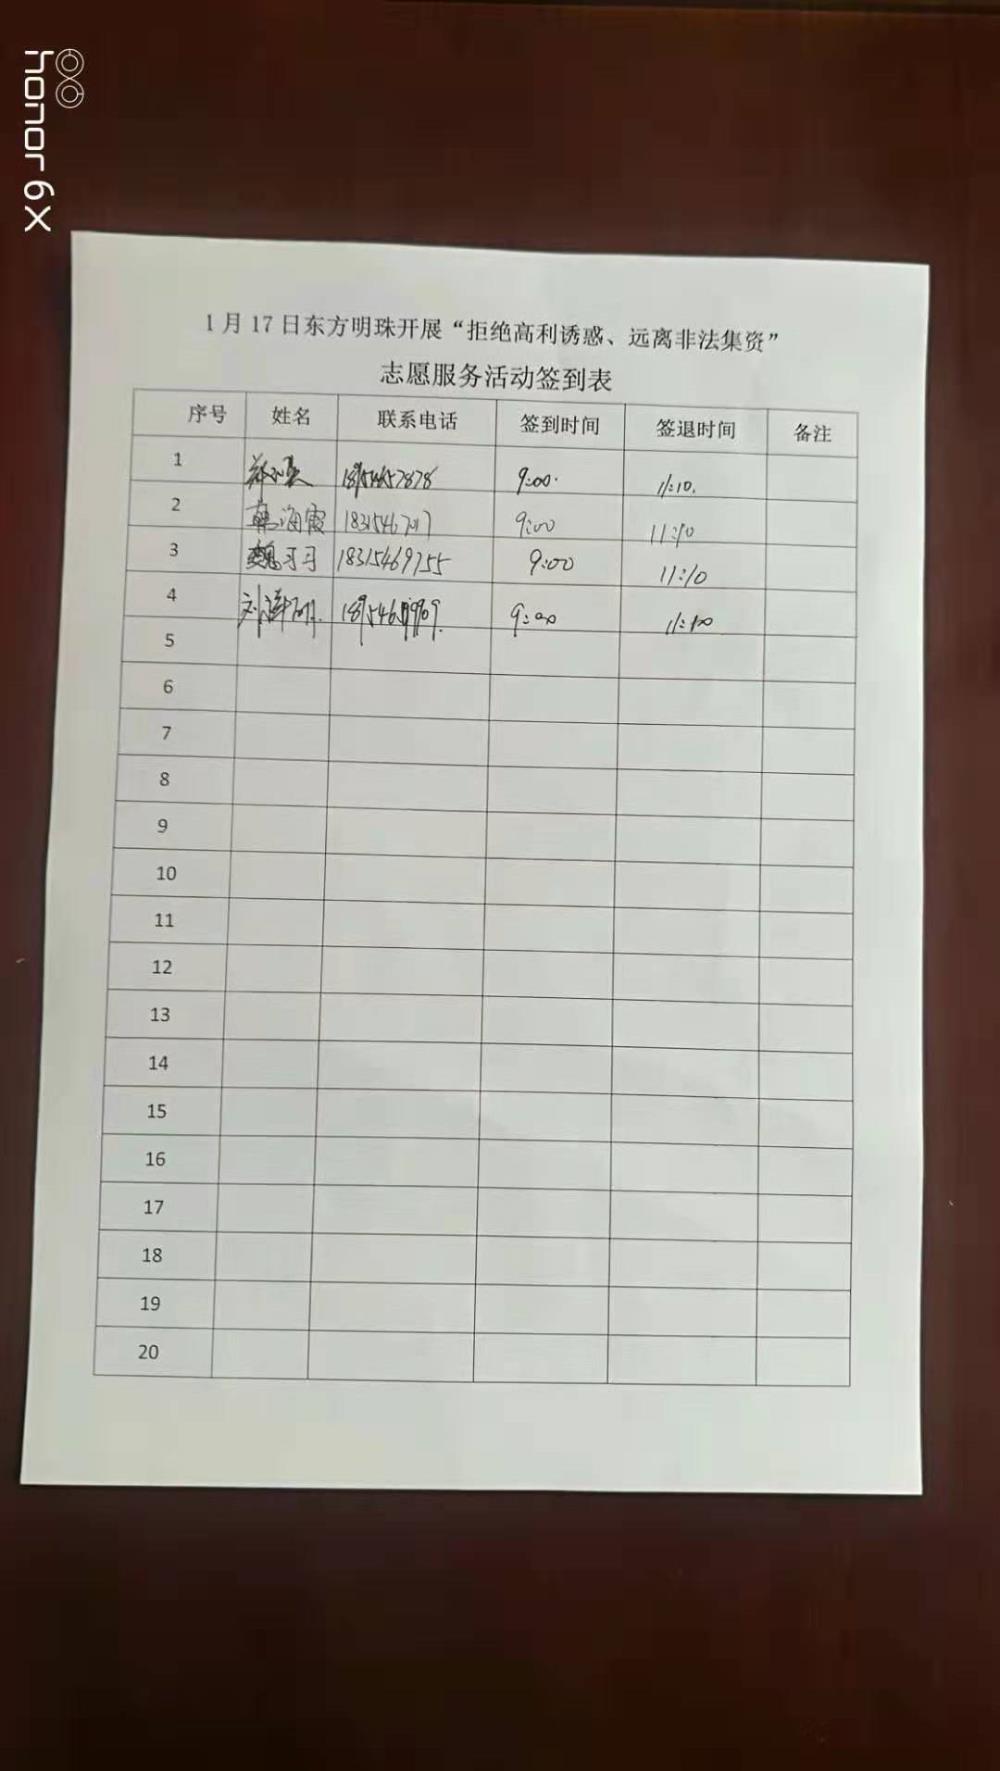 honor 6X
1月17日东方明珠开展“拒绝高利诱惑、远离非法集资”
志愿服务活动签到表
序号 姓名 联系电话 签到时间 签退时间 备注
1 9:00 11:10
2 韩海霞 9:00 11:10
3 魏习习 18315469755 9:00 11:10
4 9:00 11:10
5
6
7
8
9
10
11
12
13
14
15
16
17
18
19
20